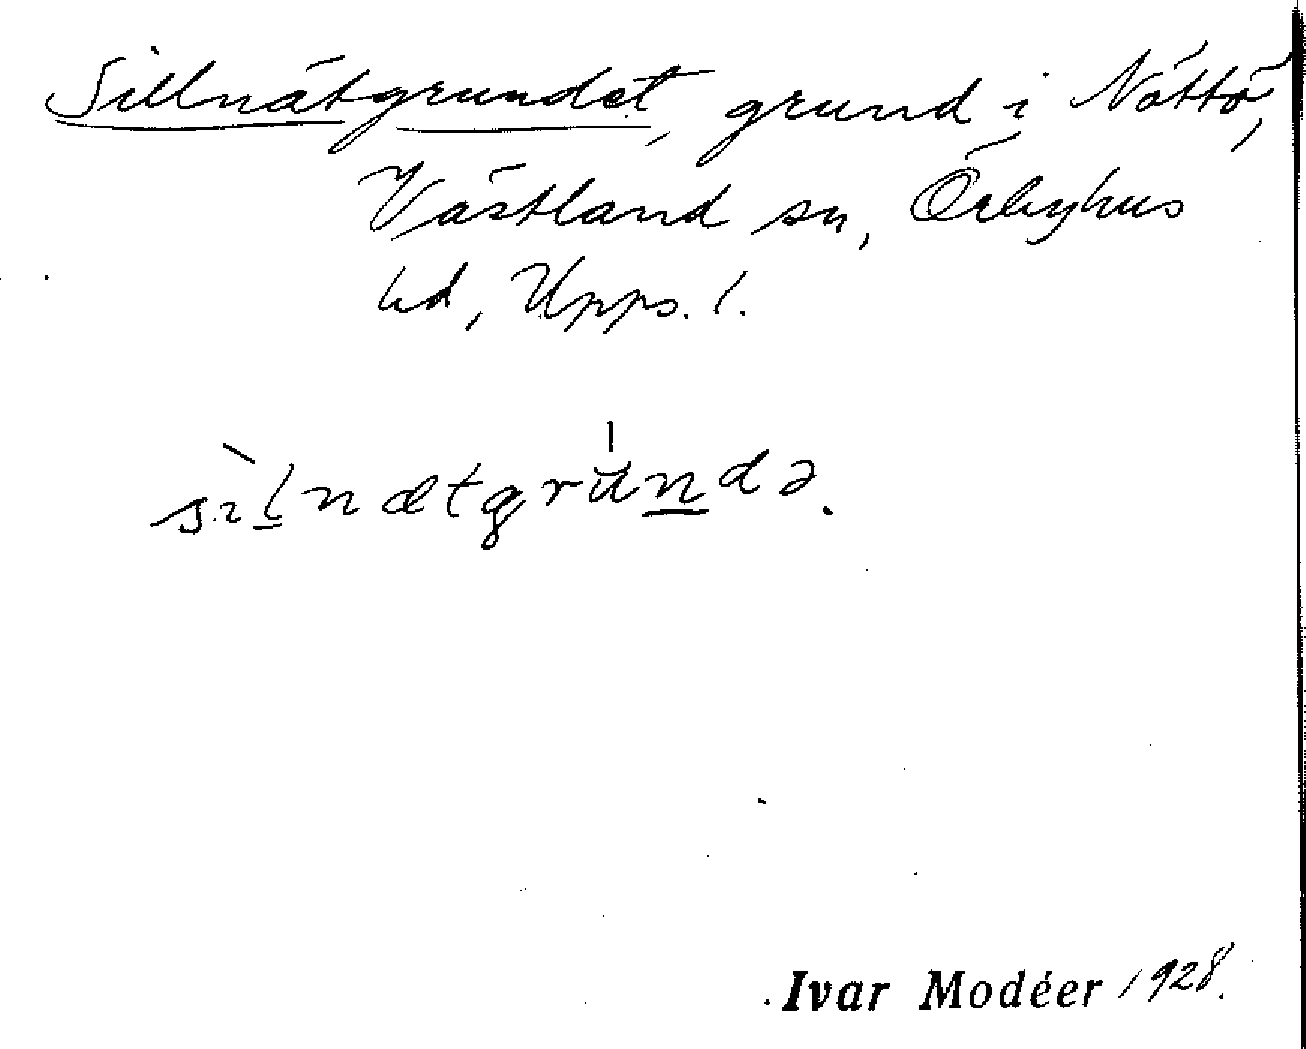 Sillnätgrundet, grund i Nöttö,
Västland sn, Örbyhus
hd, Upps. l.
sìl̲nætgrún̲də.
Ivar Modéer 1928.